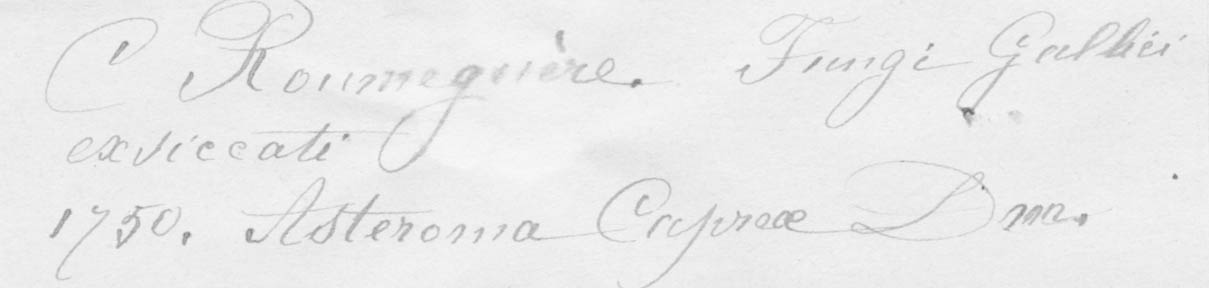 C Roumeguère. Fungi Gallici
exsiccati
1750. Asteroma Capreæ Dm.